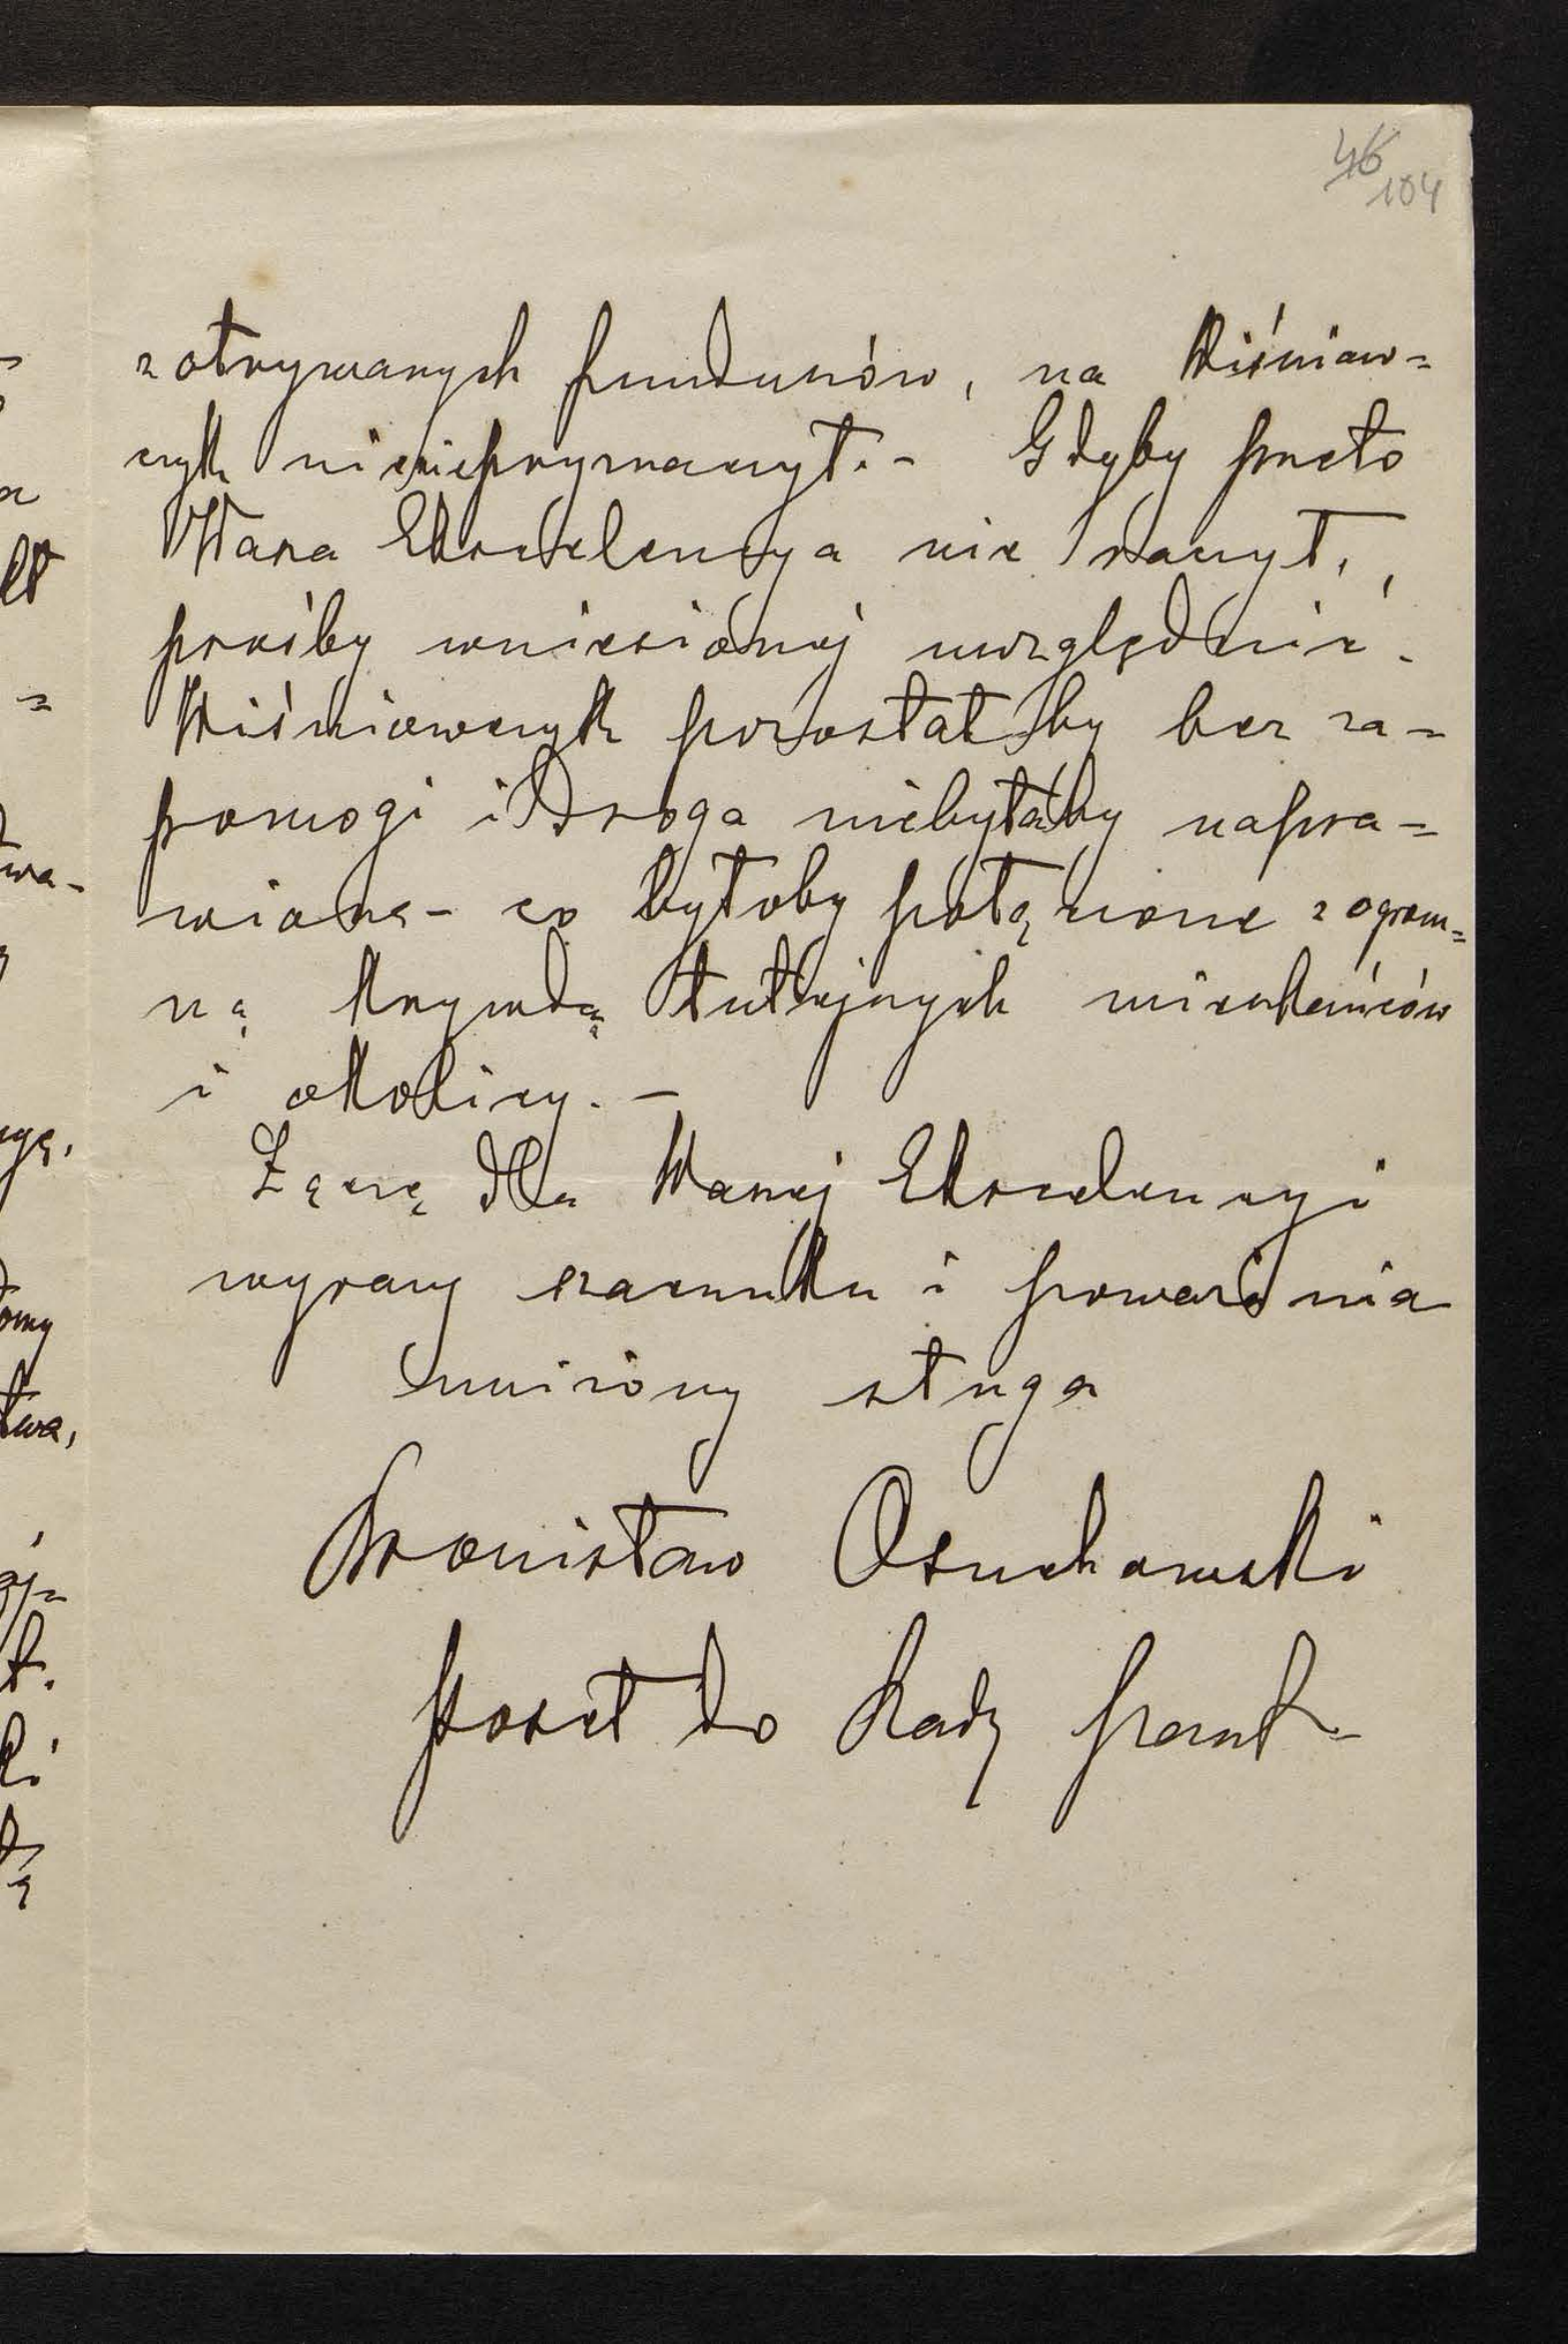 46
104
z otrzymanych funduszów, na Wiśniow=
czyk nic nieprzeznaczył. - Gdyby przeto
Wasza Ekscelencya nie raczył,
prośby wniesionej uwzględnić.
Wiśniowczyk pozostałby bez za=
pomogi i Droga niebyłaby napra=
wioną - co byłoby połączone z ogrom=
ną krzywdą tutejszych mieszkańców
i okolicy. -
Łączę dla Waszej Ekscelencyi
wyrazy szacunku i poważania
uniżony sługa
Bronisław Osuchowski
poseł do Rady